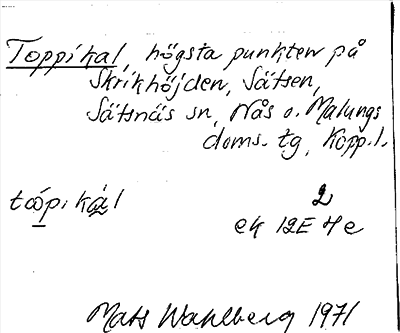 Toppikal, högsta punkten på
Skrikhöjden, Sätsen,
Sätsnäs sn, Nås o. Malungs
doms. tg, Kopp.l.
tópikál 2
ek 12E 4e
Mats Wahlberg 1971